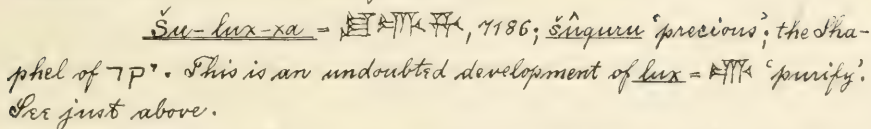 Šu-lux-xa = 𒋗𒈛𒄩, 7186; šûquru 'precious'; the Sha-
phel of יקר. This is an undoubted development of lux = 𒈛 'purify'.
See just above.